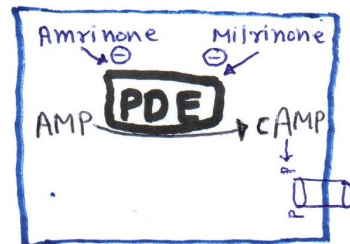 Amrinone Milrinone
⊖ ⊖
PDE
AMP cAMP
P
P